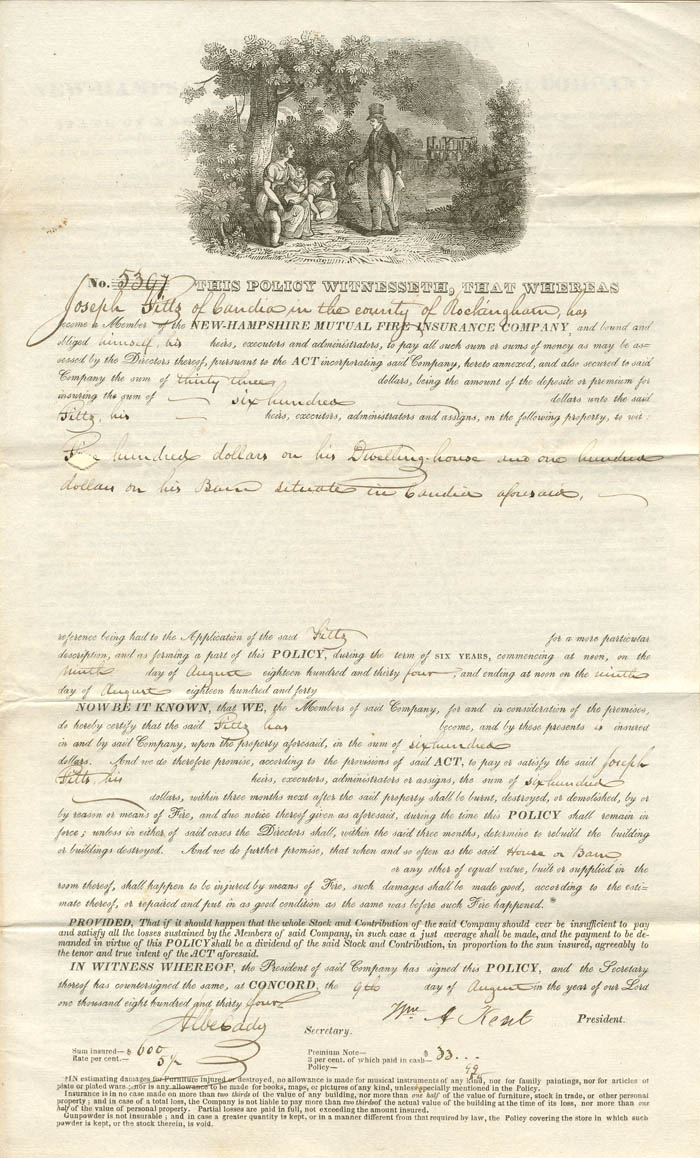 No. 5397 THIS POLICY WITNESSETH, THAT WHEREAS
Joseph Fitts of Candia in the county of Rockingham, has
become a Member of the NEW-HAMPSHIRE MUTUAL FIRE INSURANCE COMPANY, and bound and
obliged himself, his heirs, executors and administrators, to pay all such sum or sums of money as may be as=
sessed by the Directors thereof, pursuant to the ACT incorporating said Company, hereto annexed, and also secured to said
Company the sum of thirty three dollars, being the amount of the deposite or premium for
insuring the sum of — six hundred — dollars unto the said
Fitts, his — heirs, executors, administrators and assigns, on the following property, to wit:
Five hundred dollars on his Dwelling-house and one hundred
dollars on his Barn situate in Candia aforesaid, —
reference being had to the Application of the said Fitts for a more particular
description, and as forming a part of this POLICY, during the term of SIX YEARS, commencing at noon, on the
ninth day of August eighteen hundred and thirty four, and ending at noon on the ninth
day of August eighteen hundred and forty
NOW BE IT KNOWN, that WE, the Members of said Company, for and in consideration of the premises,
do hereby certify that the said Fitts has become, and by these presents is insured
in and by said Company, upon the property aforesaid, in the sum of six hundred
dollars. And we do therefore promise, according to the provisions of said ACT, to pay or satisfy the said Joseph
Fitts his heirs, executors, administrators or assigns, the sum of six hundred
— dollars, within three months next after the said property shall be burnt, destroyed, or demolished, by or
by reason or means of Fire, and due notice thereof given as aforesaid, during the time this POLICY shall remain in
force; unless in either of said cases the Directors shall, within the said three months, determine to rebuild the building
or buildings destroyed. And we do further promise, that when and so often as the said House or Barn
or any other of equal value, built or supplied in the
room thereof, shall happen to be injured by means of Fire, such damages shall be made good, according to the esti=
mate thereof, or repaired and put in as good condition as the same was before such Fire happened.*
PROVIDED, That if it should happen that the whole Stock and Contribution of the said Company should ever be insufficient to pay
and satisfy all the losses sustained by the Members of said Company, in such case a just average shall be made, and the payment to be de-
manded in virtue of this POLICY shall be a dividend of the said Stock and Contribution, in proportion to the sum insured, agreeably to
the tenor and true intent of the ACT aforesaid.
IN WITNESS WHEREOF, the President of said Company has signed this POLICY, and the Secretary
thereof has countersigned the same, at CONCORD, the 9th day of August in the year of our Lord
one thousand eight hundred and thirty four
Albe Cady Secretary. Wm A Kent President.
Sum insured—$ 600 Premium Note— $ 33...
Rate per cent.— 5½ 3 per cent. of which paid in cash—
Policy— 99
*IN estimating damages for Furniture injured or destroyed, no allowance is made for musical instruments of any kind, nor for family paintings, nor for articles of
plate or plated wars; nor is any allowance to be made for books, maps, or pictures of any kind, unless specially mentioned in the Policy.
Insurance is in no case made on more than two thirds of the value of any building, nor more than one half of the value of furniture, stock in trade, or other personal
property; and in case of a total loss, the Company is not liable to pay more than two thirds of the actual value of the building at the time of its loss, nor more than one
half of the value of personal property. Partial losses are paid in full, not exceeding the amount insured.
Gunpowder is not insurable; and in case a greater quantity is kept, or in a manner different from that required by law, the Policy covering the store in which such
powder is kept, or the stock therein, is void.